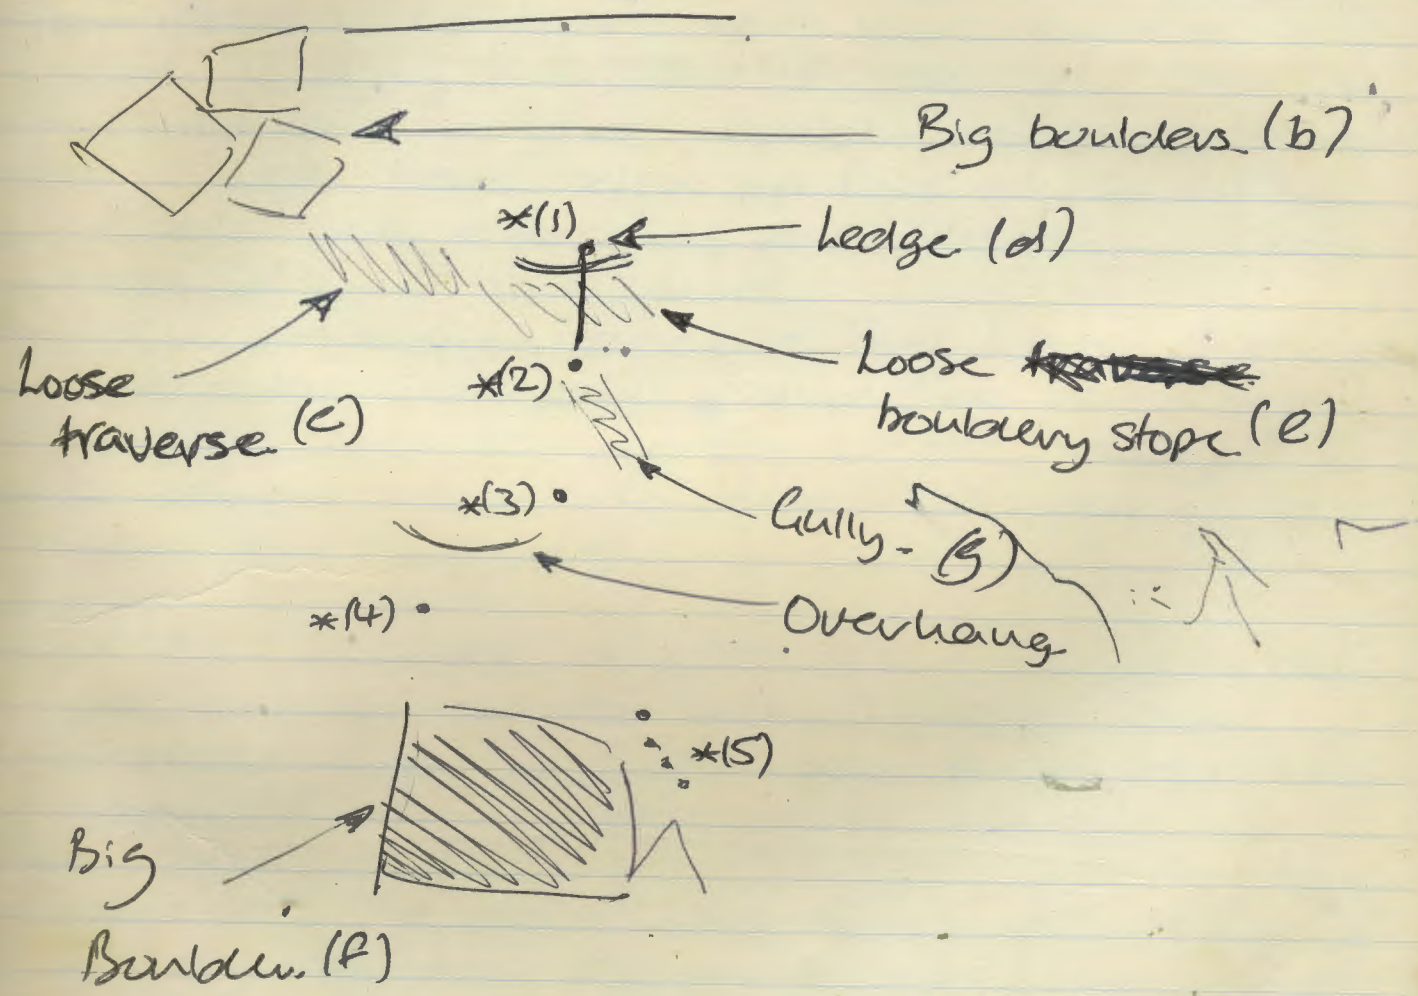 Big boulders (b)
*(1)
Ledge (d)
Loose
traverse (c)
*(2)
Loose
bouldery slope (e)
*(3)
Gully - (g)
*(4)
Overhang
*(5)
Big
Boulder. (f)